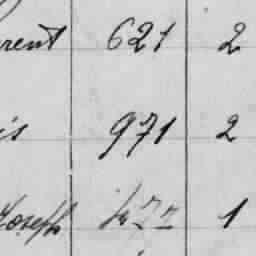 rent 621 2
is 971 2
Joseph 477 1